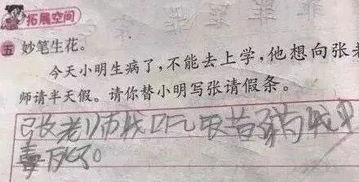 拓展空间
五 妙笔生花。
今天小明生病了,不能去上学,他想向张老
师请半天假。请你替小明写张请假条。
张老师我
毒死了。